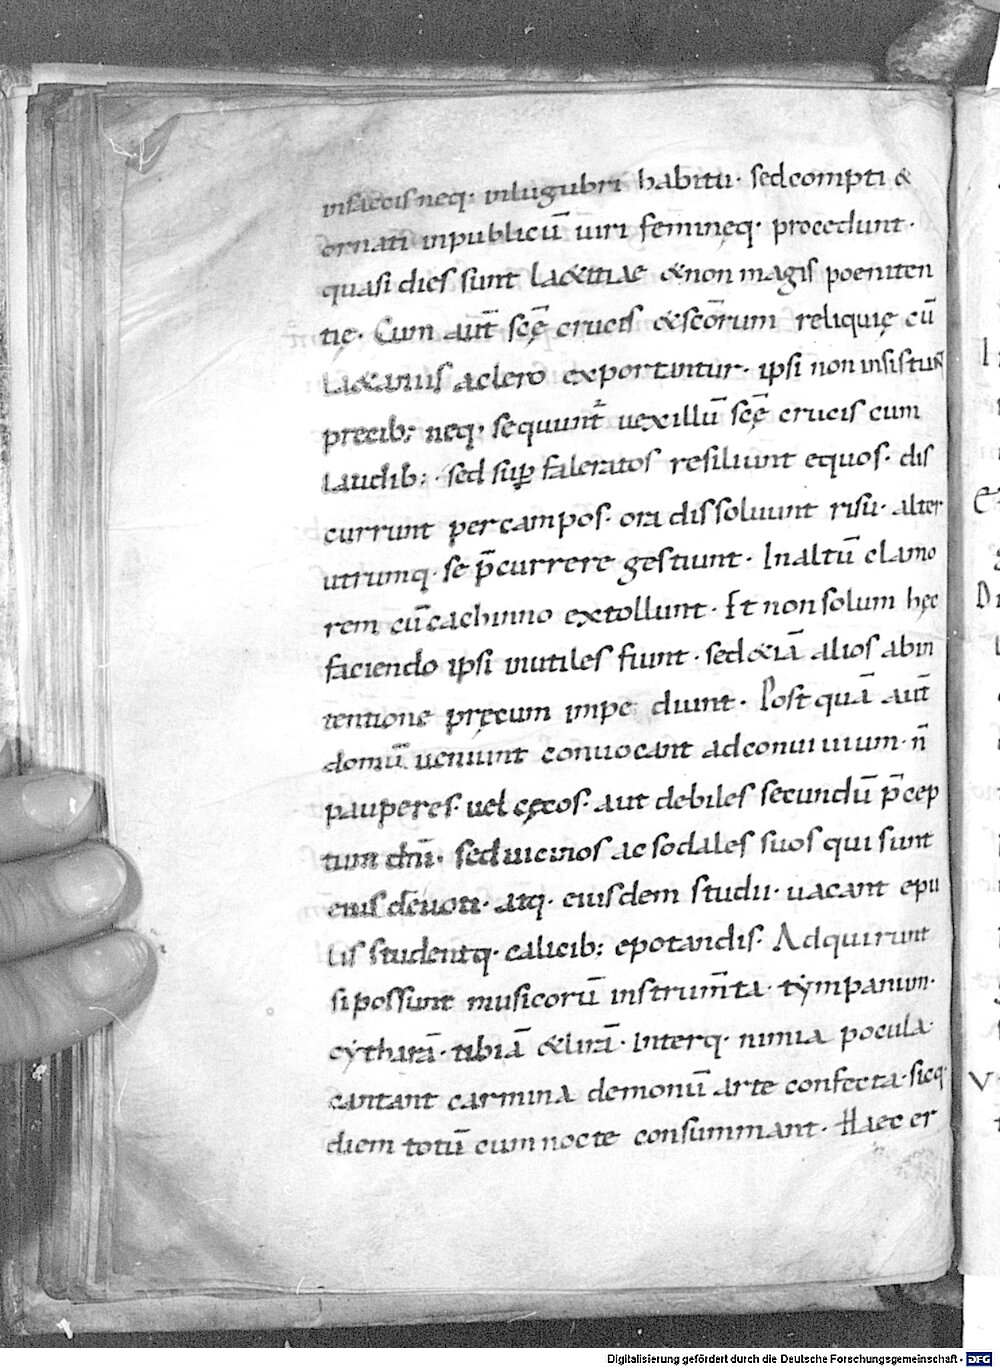 insaccis neq· inlugubri habitu· sed compti &
ornati inpublicū uiri feminęq· procedunt·
quasi dies sunt la&itiae &non magis poeniten
tię· Cum aut̄ scę̄ crucis &scōrum reliquię cū
la&aniis aclero exportantur· ipsi non insistunt
precib; neq· sequunt̄ uexillū scę̄ crucis cum
laudib;· sed suꝑ faleratos resiliunt equos· dis
currunt per campos· ora dissoluunt risu· alter
utrumq· se p̄currere gestiunt· Inaltū clamo
rem cū cachinno extollunt· Et non solum hęc
faciendo ipsi inutiles fiunt· sed&iā alios abin
tentione pręcum impe diunt· Post quā aut̄
domū ueniunt conuocant adconuiuium· n̄
pauperes· uel cęcos· aut debiles secundū p̄cep
tum dn̄i· sed uicinos ac sodales suos qui sunt
eius dēuoti· atq· eiusdem studii· uacant epu
lis studentq· calicib; epotandis· Adquirunt
si possunt musicorū instrum̄ta· tẏmpanum·
cẏtharā· tibiā &lirā· Interq· nimia pocula·
cantant carmina demonū arte confecta· sicq·
diem totū cum nocte consummant· Haec er
Digitalisierung gefördert durch die Deutsche Forschungsgemeinschaft - DFG